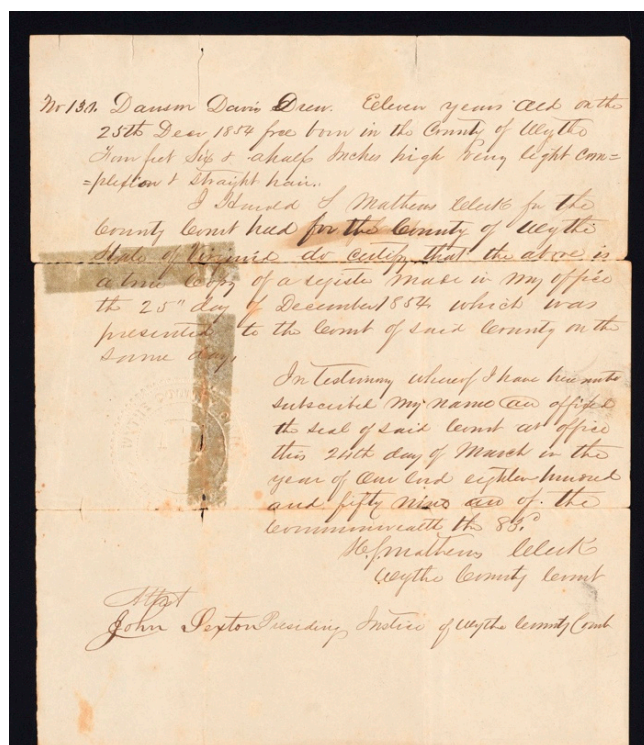 No 138. Dawson Davis Drew. Eleven years old on the
25th Decr 1854 free born in the County of Wythe
Four feet Six & a half Inches high very light com=
=plexion & straight hair.
I Harold S Mathews Clerk for the
County Court had for the County of Wythe
State of Virginia do certify that the above is
a true copy of a register made in my office
the 25" day of December 1854 which was
presented to the Court of said County on the
same day.
In testimony whereof I have hereunto
subscribed my name and affixed
the seal of said Court at office
this 24th day of March in the
year of Our Lord eighteen hundred
and fifty nine and of the
Commonwealth the 83d
H S Mathews Clerk
Wythe County Court
Attest
John Sexton Presiding Justice of Wythe County Court
WYTHE COUNTY